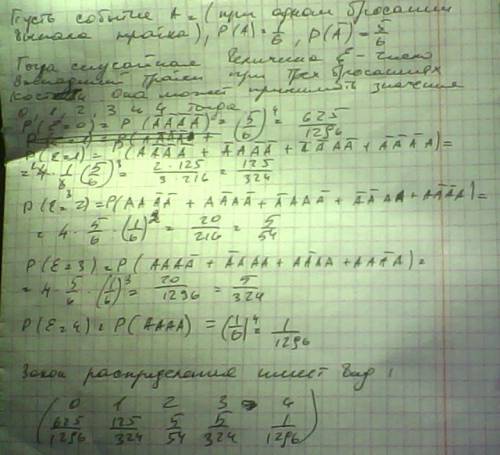 Пусть событие A = (при одном бросании
выпала тройка), P(A) = 1/6, P(Ā) = 5/6
Тогда случайная величина ξ - число
выпадений тройки при трех бросаниях
кости. Она может принимать значения
0, 1, 2, 3 и 4 тогда
P(ξ=0) = P(ĀĀĀĀ) = (5/6)^4 = 625/1296
P(ξ=1) = P(AĀĀĀ + ĀAĀĀ + ĀĀAĀ + ĀĀĀA) =
= 4 · 1/6 (5/6)^3 = 2·125/3·216 = 125/324
P(ξ=2) = P(AAĀĀ + AĀAĀ + ĀAAĀ + ĀAĀA + AĀĀA) =
= 4 · 5/6 · (1/6)^2 = 20/216 = 5/54
P(ξ=3) = P(AAAĀ + ĀAAA + AĀAA + AAĀA) =
= 4 · 5/6 · (1/6)^3 = 20/1296 = 5/324
P(ξ=4) = P(AAAA) = (1/6)^4 = 1/1296
Закон распределения имеет вид:
0 1 2 3 4
625/1296 125/324 5/54 5/324 1/1296